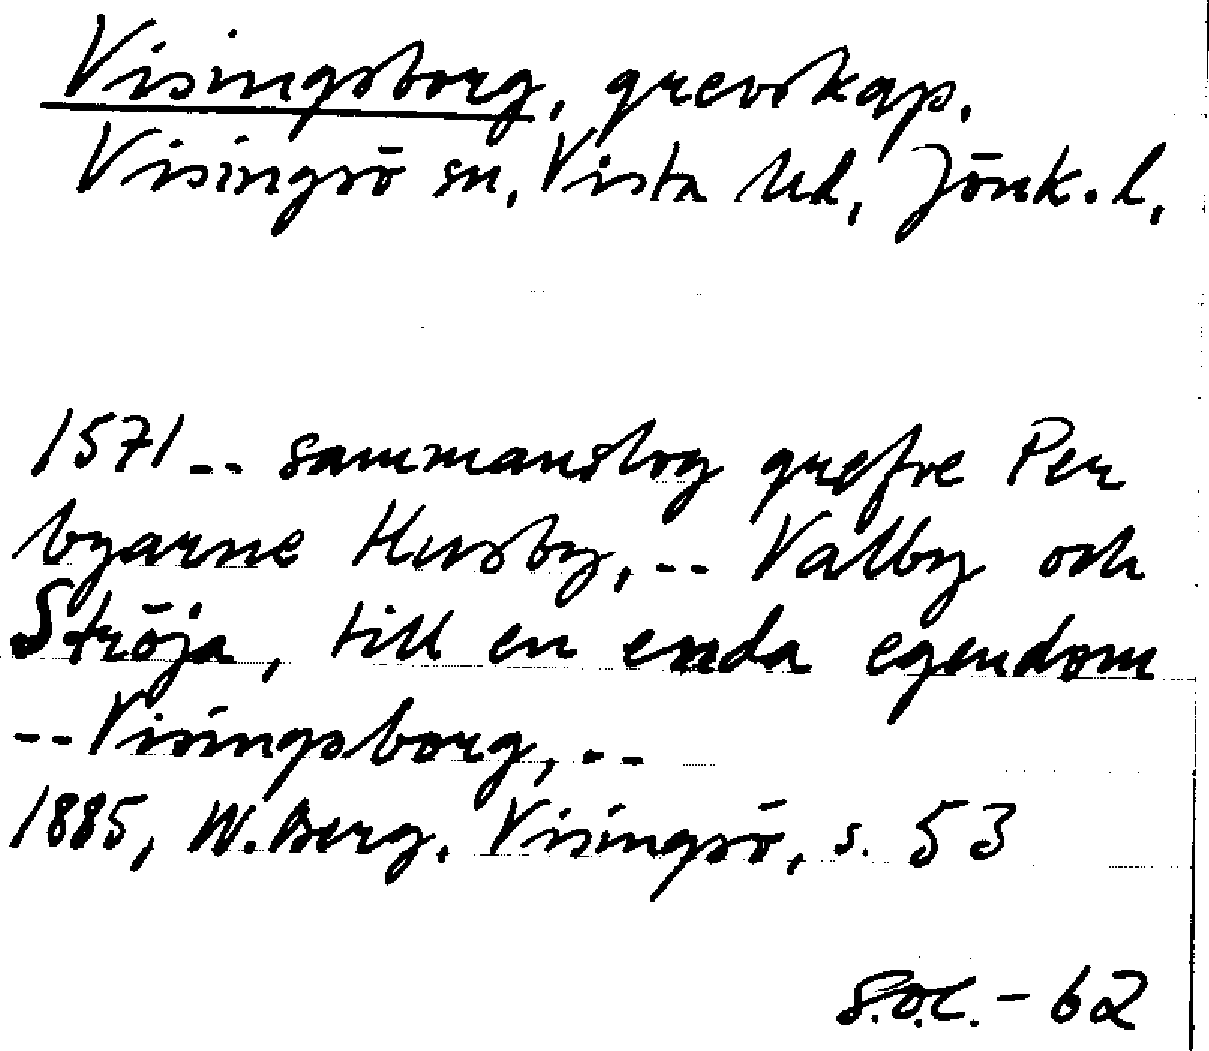 Visingsborg, grevskap.
Visingsö sn, Vista hd, Jönk. l.
1571 -- sammanslog grefve Per
byarne Husby, -- Valby och
Ströja, till en enda egendom
-- Visingsborg, --
1885, W. Berg. Visingsö, s. 53
S.O.C. - 62